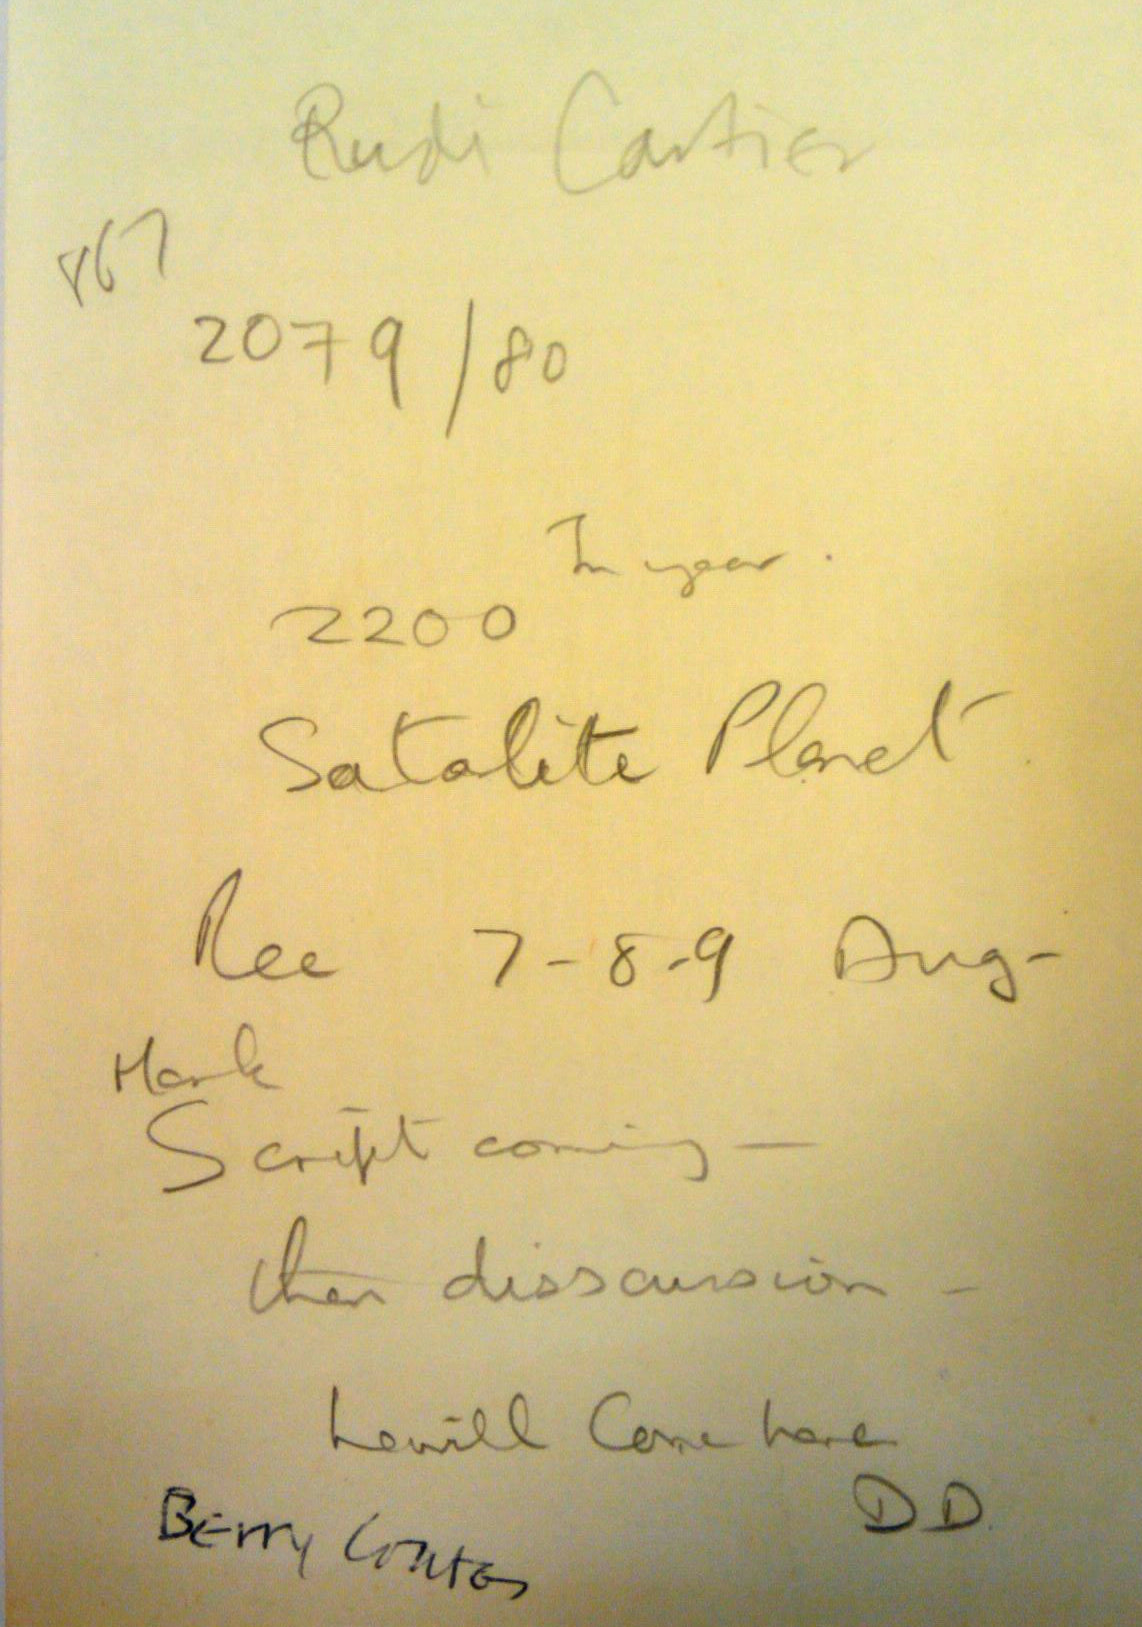 Rudi Cartier
867
2079/80
In year.
2200
Satalite Planet
Rec 7-8-9 Aug-
Mark
Script coming —
then disscussion -
he will Come here
DD
Berry